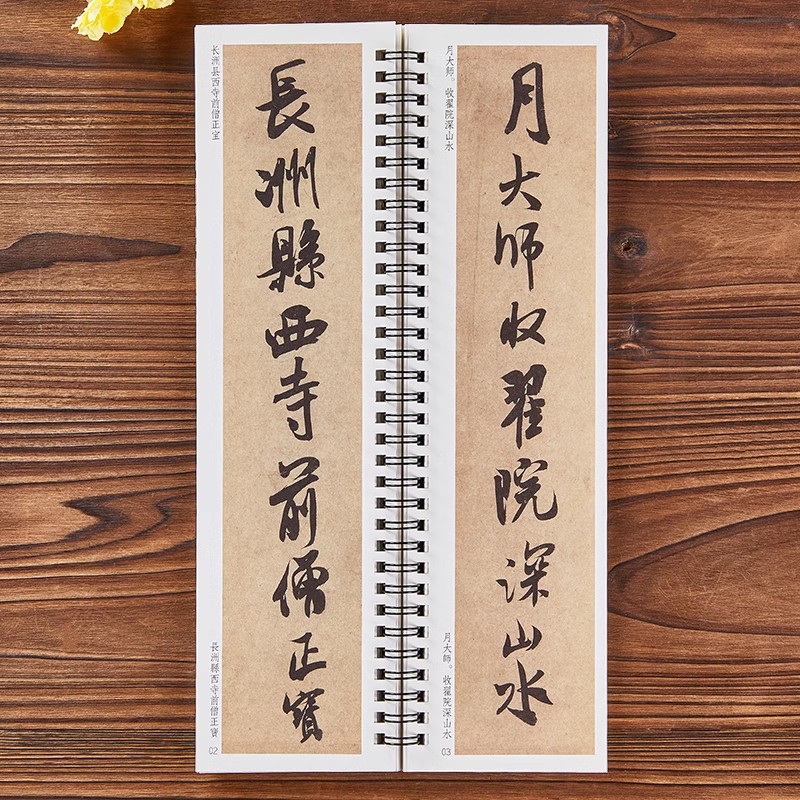 长洲县西寺前僧正宝
長洲縣西寺前僧正寶
長洲縣西寺前僧正寶
02
月大师。收翟院深山水
月大師收翟院深山水
月大師。收翟院深山水
03